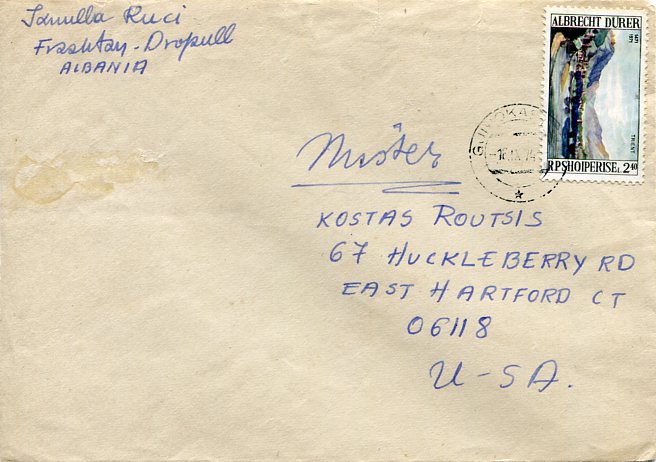 Jamulla Ruci
Frashtan - Dropull
ALBANIA
ALBRECHT DÜRER
TRENT
R.P.SHQIPERISE L 2.40
GJIROKAS
-16.IX.74
Mister
KOSTAS ROUTSIS
67 HUCKLEBERRY RD
EAST HARTFORD CT
06118
U-SA.